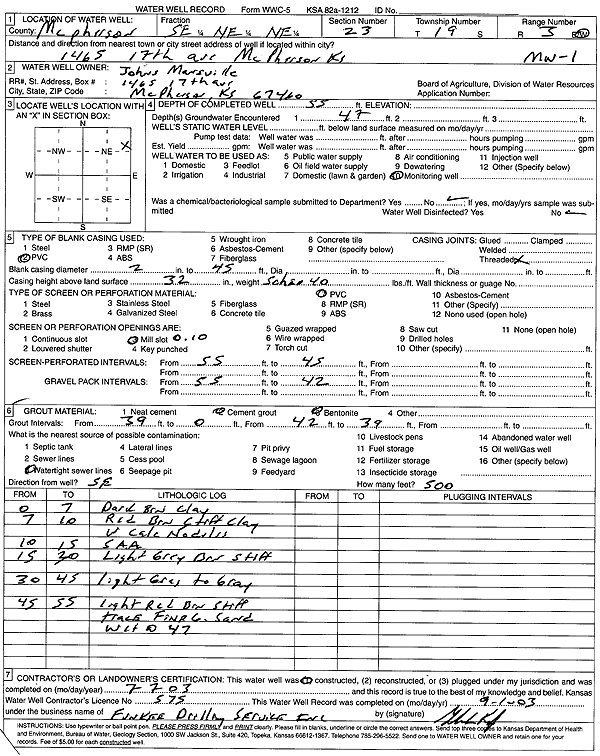 WATER WELL RECORD Form WWC-5 KSA 82a-1212 ID No.
1 LOCATION OF WATER WELL: Fraction Section Number Township Number Range Number
County: McPherson SE ¼ NE ¼ NE ¼ 23 T 19 S R 3 E/W
Distance and direction from nearest town or city street address of well if located within city?
1465 17th ave McPherson Ks MW-1
2 WATER WELL OWNER: Johns Mansville
RR#, St. Address, Box # : 1465 17th ave Board of Agriculture, Division of Water Resources
City, State, ZIP Code : McPherson Ks 67460 Application Number:
3 LOCATE WELL'S LOCATION WITH AN "X" IN SECTION BOX:
N
NW NE X
W E
SW SE
S
4 DEPTH OF COMPLETED WELL 55 ft. ELEVATION:
Depth(s) Groundwater Encountered 1 47 ft. 2 ft. 3 ft.
WELL'S STATIC WATER LEVEL ft. below land surface measured on mo/day/yr
Pump test data: Well water was ft. after hours pumping gpm
Est. Yield gpm: Well water was ft. after hours pumping gpm
WELL WATER TO BE USED AS: 5 Public water supply 8 Air conditioning 11 Injection well
1 Domestic 3 Feedlot 6 Oil field water supply 9 Dewatering 12 Other (Specify below)
2 Irrigation 4 Industrial 7 Domestic (lawn & garden) 10 Monitoring well
Was a chemical/bacteriological sample submitted to Department? Yes No ✓; If yes, mo/day/yrs sample was submitted Water Well Disinfected? Yes No ✓
5 TYPE OF BLANK CASING USED: 5 Wrought iron 8 Concrete tile CASING JOINTS: Glued Clamped
1 Steel 3 RMP (SR) 6 Asbestos-Cement 9 Other (specify below) Welded
2 PVC 4 ABS 7 Fiberglass Threaded ✓
Blank casing diameter 2 in. to 45 ft., Dia in. to ft., Dia in. to ft.
Casing height above land surface 32 in., weight Sched 40 lbs./ft. Wall thickness or guage No.
TYPE OF SCREEN OR PERFORATION MATERIAL: 7 PVC 10 Asbestos-Cement
1 Steel 3 Stainless Steel 5 Fiberglass 8 RMP (SR) 11 Other (Specify)
2 Brass 4 Galvanized Steel 6 Concrete tile 9 ABS 12 None used (open hole)
SCREEN OR PERFORATION OPENINGS ARE: 5 Guazed wrapped 8 Saw cut 11 None (open hole)
1 Continuous slot 3 Mill slot 0.10 6 Wire wrapped 9 Drilled holes
2 Louvered shutter 4 Key punched 7 Torch cut 10 Other (specify) ft.
SCREEN-PERFORATED INTERVALS: From 55 ft. to 45 ft., From ft. to ft.
From ft. to ft., From ft. to ft.
GRAVEL PACK INTERVALS: From 55 ft. to 42 ft., From ft. to ft.
From ft. to ft., From ft. to ft.
6 GROUT MATERIAL: 1 Neat cement 2 Cement grout 3 Bentonite 4 Other
Grout Intervals: From 39 ft. to 0 ft., From 42 ft. to 39 ft., From ft. to ft.
What is the nearest source of possible contamination: 10 Livestock pens 14 Abandoned water well
1 Septic tank 4 Lateral lines 7 Pit privy 11 Fuel storage 15 Oil well/Gas well
2 Sewer lines 5 Cess pool 8 Sewage lagoon 12 Fertilizer storage 16 Other (specify below)
3 Watertight sewer lines 6 Seepage pit 9 Feedyard 13 Insecticide storage
Direction from well? SE How many feet? 500
FROM TO LITHOLOGIC LOG FROM TO PLUGGING INTERVALS
0 7 Dark Brn Clay
7 10 Red Brn Stiff Clay
V Calc Nodules
10 15 SAA
15 30 Light Grey Brn Stiff
30 45 light Grey to Gray
45 55 Light Red Brn Stiff
trace Fine G. Sand
Wet @ 47
7 CONTRACTOR'S OR LANDOWNER'S CERTIFICATION: This water well was (1) constructed, (2) reconstructed, or (3) plugged under my jurisdiction and was
completed on (mo/day/year) 7 7 03 and this record is true to the best of my knowledge and belief. Kansas
Water Well Contractor's Licence No 575 This Water Well Record was completed on (mo/day/yr) 9-1-03
under the business name of Funkee Drilling Service Inc by (signature)
INSTRUCTIONS: Use typewriter or ball point pen. PLEASE PRESS FIRMLY and PRINT clearly. Please fill in blanks, underline or circle the correct answers. Send top three copies to Kansas Department of Health
and Environment, Bureau of Water, Geology Section, 1000 SW Jackson St., Suite 420, Topeka, Kansas 66612-1367. Telephone 785-296-5522. Send one to WATER WELL OWNER and retain one for your
records. Fee of $5.00 for each constructed well.